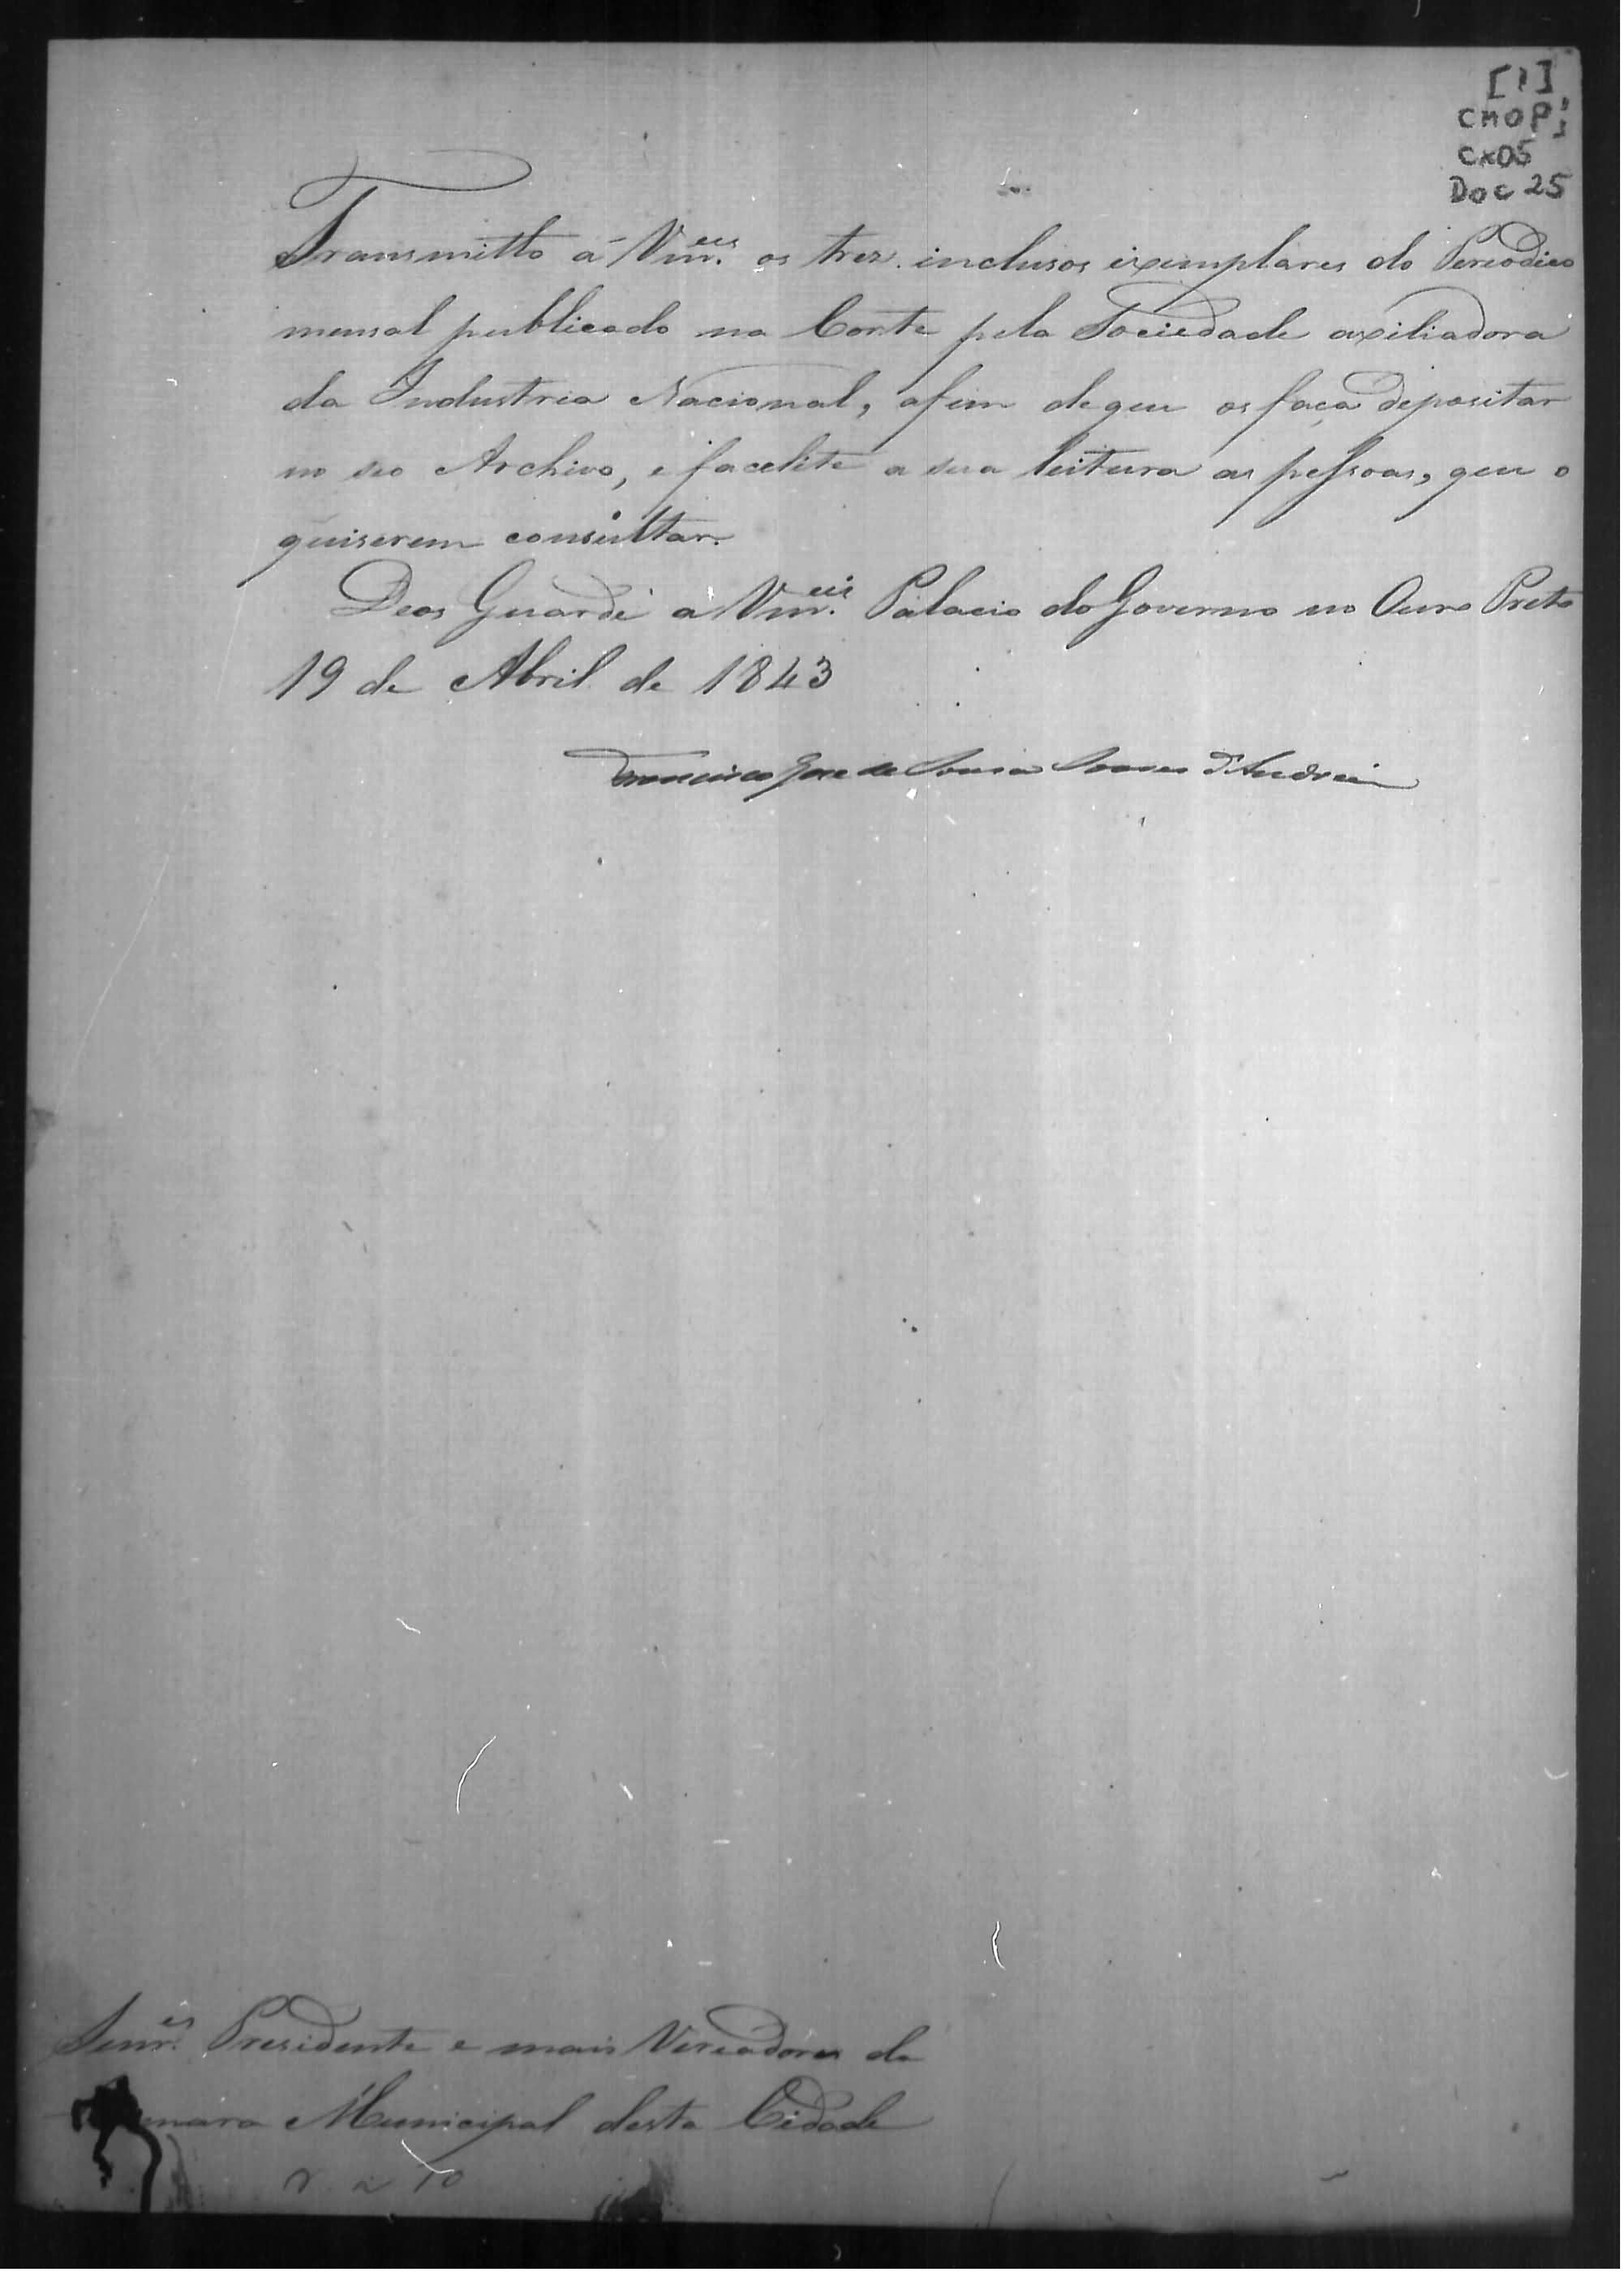 [1]
CMOP;
CX05
Doc 25
Transmitto á Vm.ces os trez inclusos exemplares do Periodico
mensal publicado na Corte pela Sociedade auxiliadora
da Industria Nacional, afim de que os faça depositar
no seo Archivo, e facelite a sua leitura as pessoas, que o
quiserem consultar.
Deos Guarde a Vm.ces Palacio do Governo no Ouro Preto
19 de Abril de 1843
Francisco Jose de Sousa Soares d'Andrea
Senr.es Presidente e mais Vereadores da
Camara Municipal desta Cidade